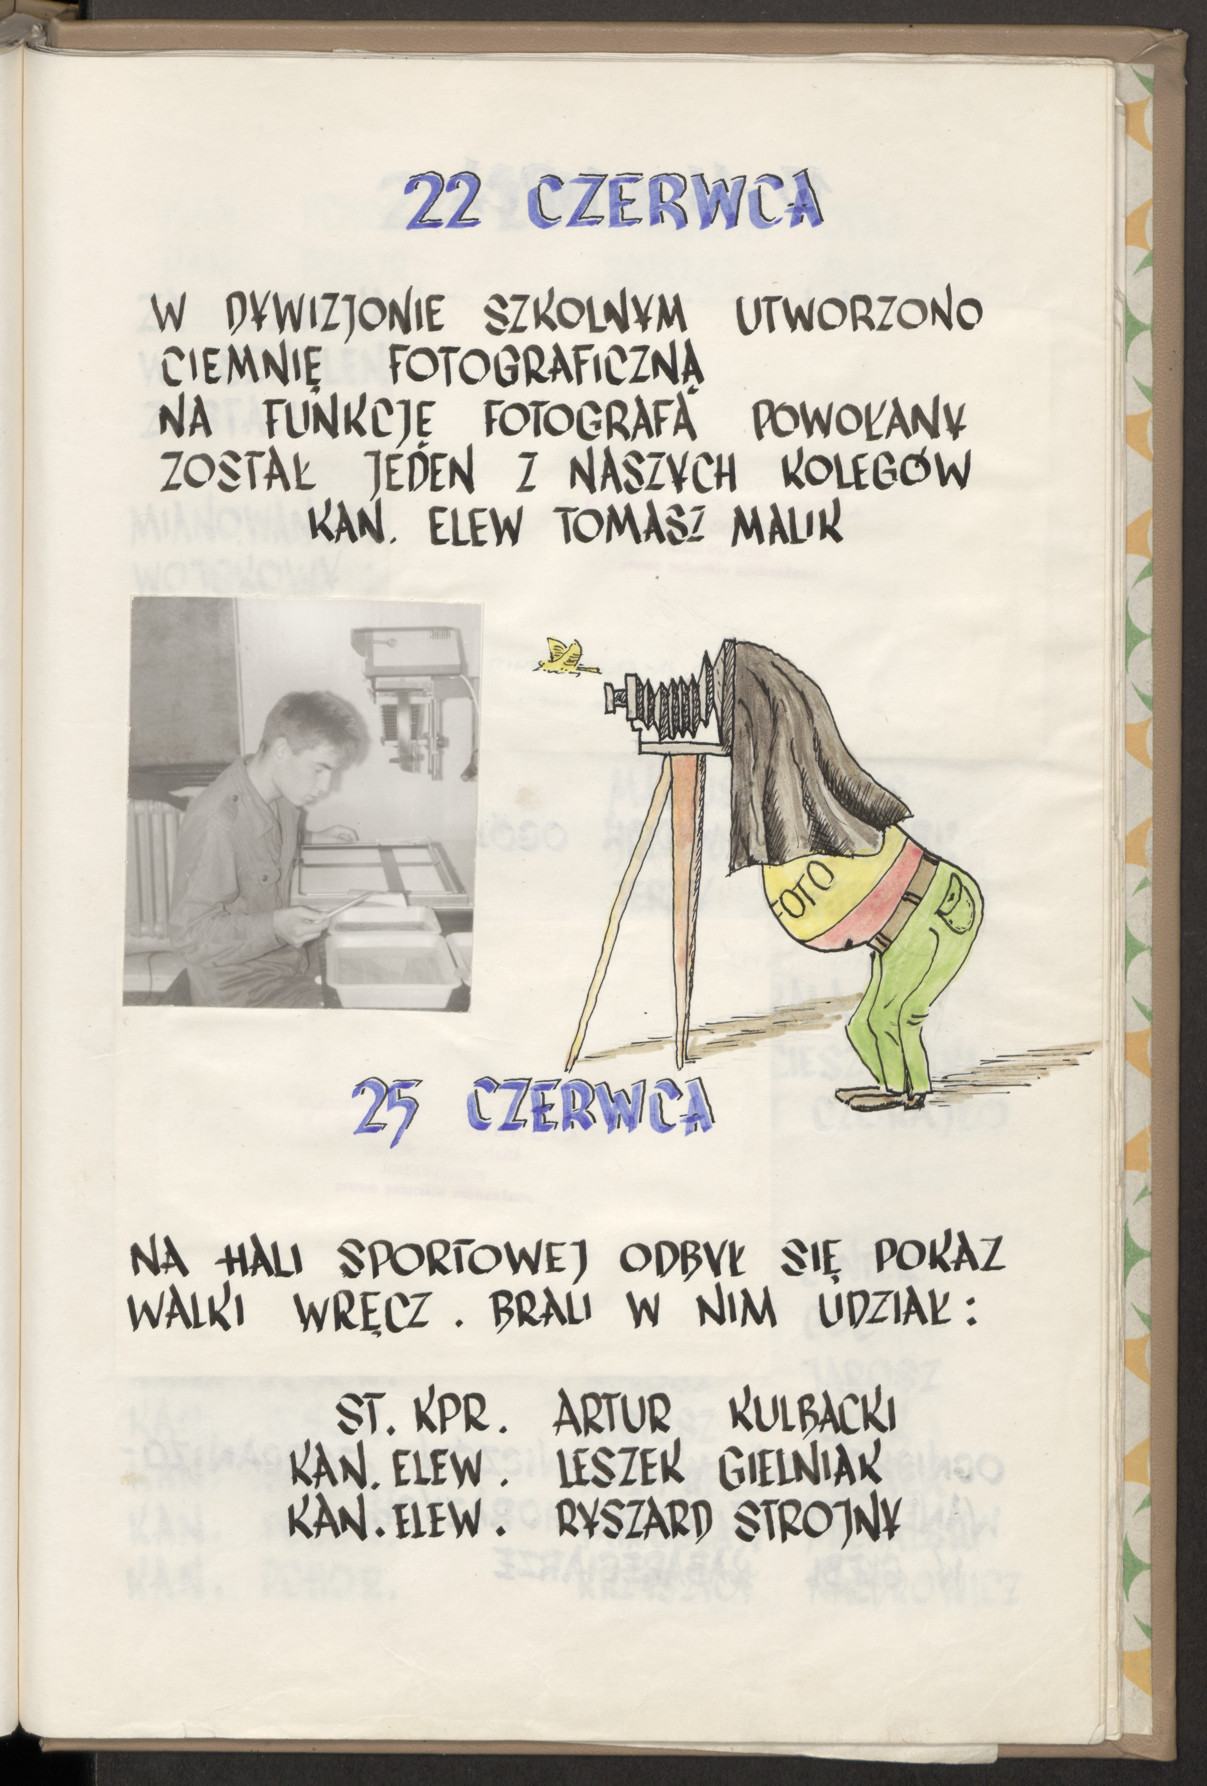 22 CZERWCA
W DYWIZJONIE SZKOLNYM UTWORZONO
CIEMNIĘ FOTOGRAFICZNĄ
NA FUNKCJĘ FOTOGRAFA POWOŁANY
ZOSTAŁ JEDEN Z NASZYCH KOLEGÓW
KAN. ELEW TOMASZ MALIK
FOTO
25 CZERWCA
NA HALI SPORTOWEJ ODBYŁ SIĘ POKAZ
WALKI WRĘCZ. BRALI W NIM UDZIAŁ:
ST. KPR. ARTUR KULBACKI
KAN. ELEW. LESZEK GIELNIAK
KAN. ELEW. RYSZARD STROJNY